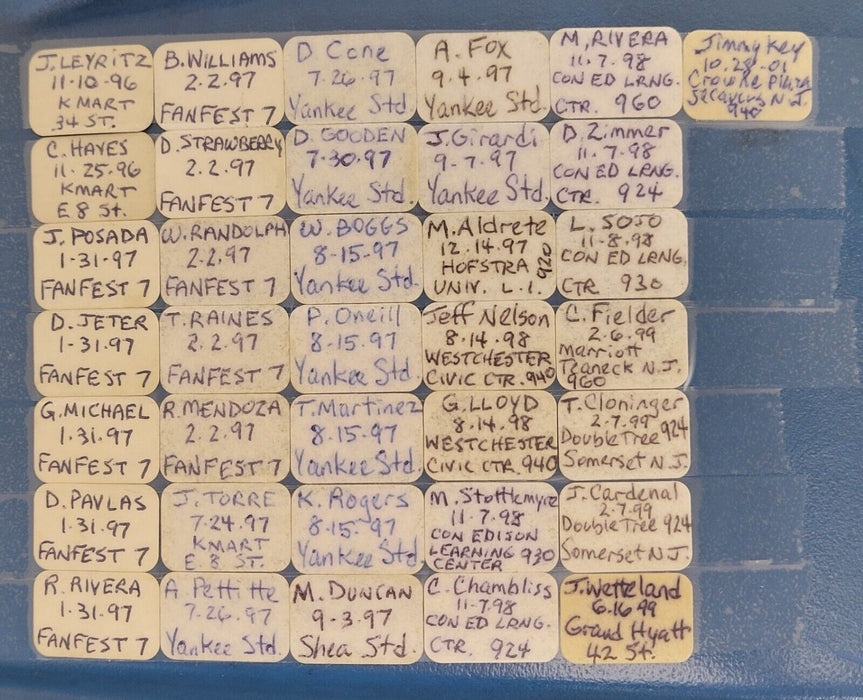 J. LEYRITZ
11-10-96
K MART
34 ST.
C. HAYES
11-25-96
KMART
E 8 St.
J. POSADA
1-31-97
FANFEST 7
D. JETER
1-31-97
FANFEST 7
G. MICHAEL
1-31-97
FANFEST 7
D. PAVLAS
1-31-97
FANFEST 7
R. RIVERA
1-31-97
FANFEST 7
B. WILLIAMS
2.2.97
FANFEST 7
D. STRAWBERRY
2.2.97
FANFEST 7
W. RANDOLPH
2.2.97
FANFEST 7
T. RAINES
2.2.97
FANFEST 7
R. MENDOZA
2.2.97
FANFEST 7
J. TORRE
7-24-97
KMART
E. 8 ST.
A. Pettitte
7-26-97
Yankee Std.
D Cone
7-26-97
Yankee Std
D. GOODEN
7-30-97
Yankee Std.
W. BOGGS
8-15-97
Yankee Std.
P. Oneill
8-15-97
Yankee Std.
T. Martinez
8-15-97
Yankee Std.
K. Rogers
8-15-97
Yankee Std.
M. DUNCAN
9-3-97
Shea Std.
A. FOX
9.4.97
Yankee Std.
J. Girardi
9-7-97
Yankee Std.
M. Aldrete
12.14.97
HOFSTRA 920
UNIV. L.I.
Jeff Nelson
8.14.98
WESTCHESTER
CIVIC CTR. 940
G. LLOYD
8.14.98
WESTCHESTER
CIVIC CTR. 940
M. Stottlemyre
11-7.98
CON EDISON
LEARNING 930
CENTER
C. Chambliss
11-7.98
CON ED LRNG.
CTR. 924
M. RIVERA
11.7.98
CON ED LRNG.
CTR. 960
D. Zimmer
11.7.98
CON ED LRNG.
CTR. 924
L. SOJO
11-8.98
CON ED LRNG.
CTR 930
C. Fielder
2-6.99
Marriott
Teaneck N.J.
960
T. Cloninger
2-7.99
DoubleTree 924
Somerset N.J.
J. Cardenal
2-7.99
DoubleTree 924
Somerset N.J.
J. Wetteland
6.16.99
Grand Hyatt
42 St.
Jimmy Key
10.28-01
Crowne Plaza
Secaucus N.J.
940